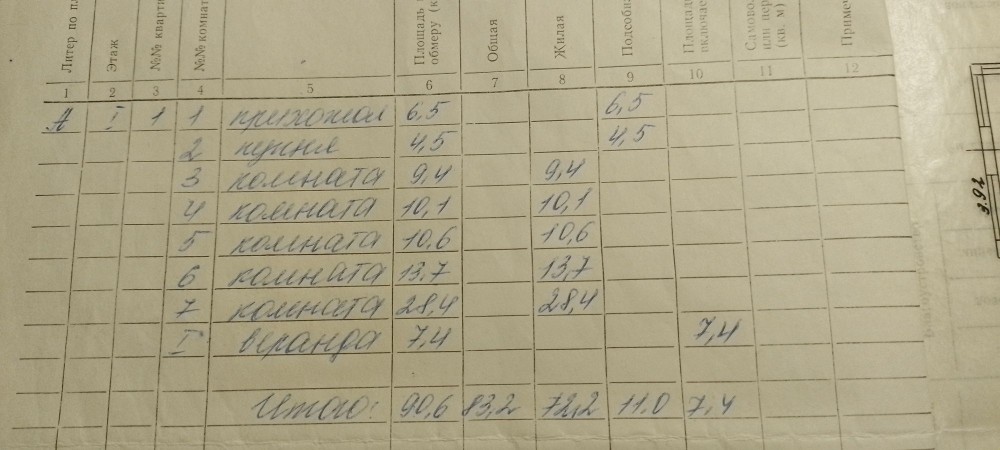 Литер по пл
Этаж
№№ кварти
№№ комнат
Площадь
обмеру (к
Общая
Жилая
Подсобна
Площад
включае
Самовол
или пер
(кв. м)
Примеч
1 2 3 4 5 6 7 8 9 10 11 12
А I 1 1 прихожая 6,5 6,5
2 кухня 4,5 4,5
3 комната 9,4 9,4
4 комната 10,1 10,1
5 комната 10,6 10,6
6 комната 13,7 13,7
7 комната 28,4 28,4
I веранда 7,4 7,4
Итого: 90,6 83,2 72,2 11,0 7,4
3.92